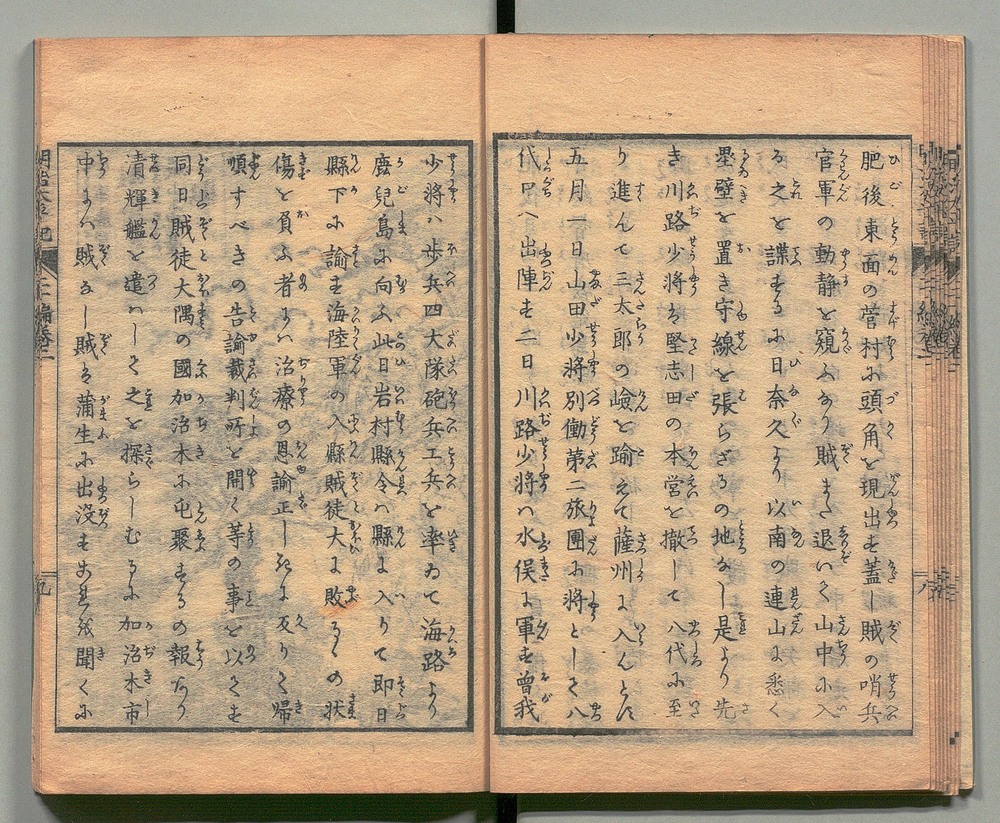 肥後東面の菅村に頭角を現出す蓋し賊の哨兵
官軍の動静を窺ふなり賊また退いて山中に入
る之を諜するに日奈久より以南の連山に悉く
塁壁を置き守線を張らざるの地なし是より先
き川路少将は堅志田の本営を撤して八代に至
り進んで三太郎の嶮を踰えて薩州に入んとす
五月一日山田少将別働第二旅團に将として八
代口へ出陣す二日川路少将ハ水俣に軍す曾我
少将ハ歩兵四大隊砲兵工兵を率ゐて海路より
鹿児島に向ふ此日岩村縣令ハ縣に入りて即日
縣下に諭す海陸軍の入縣賊徒大に敗るゝの状
傷を負ふ者には治療の恩諭正しきに反りて帰
順すべきの告諭裁判所を開く等の事を以てす
同日賊徒大隅の國加治木に屯聚するの報あり
清輝艦を遣ハして之を探らしむるに加治木市
中にハ賊なし賊は蒲生に出没す 聞くに
明治太平記
二編巻二
九
八